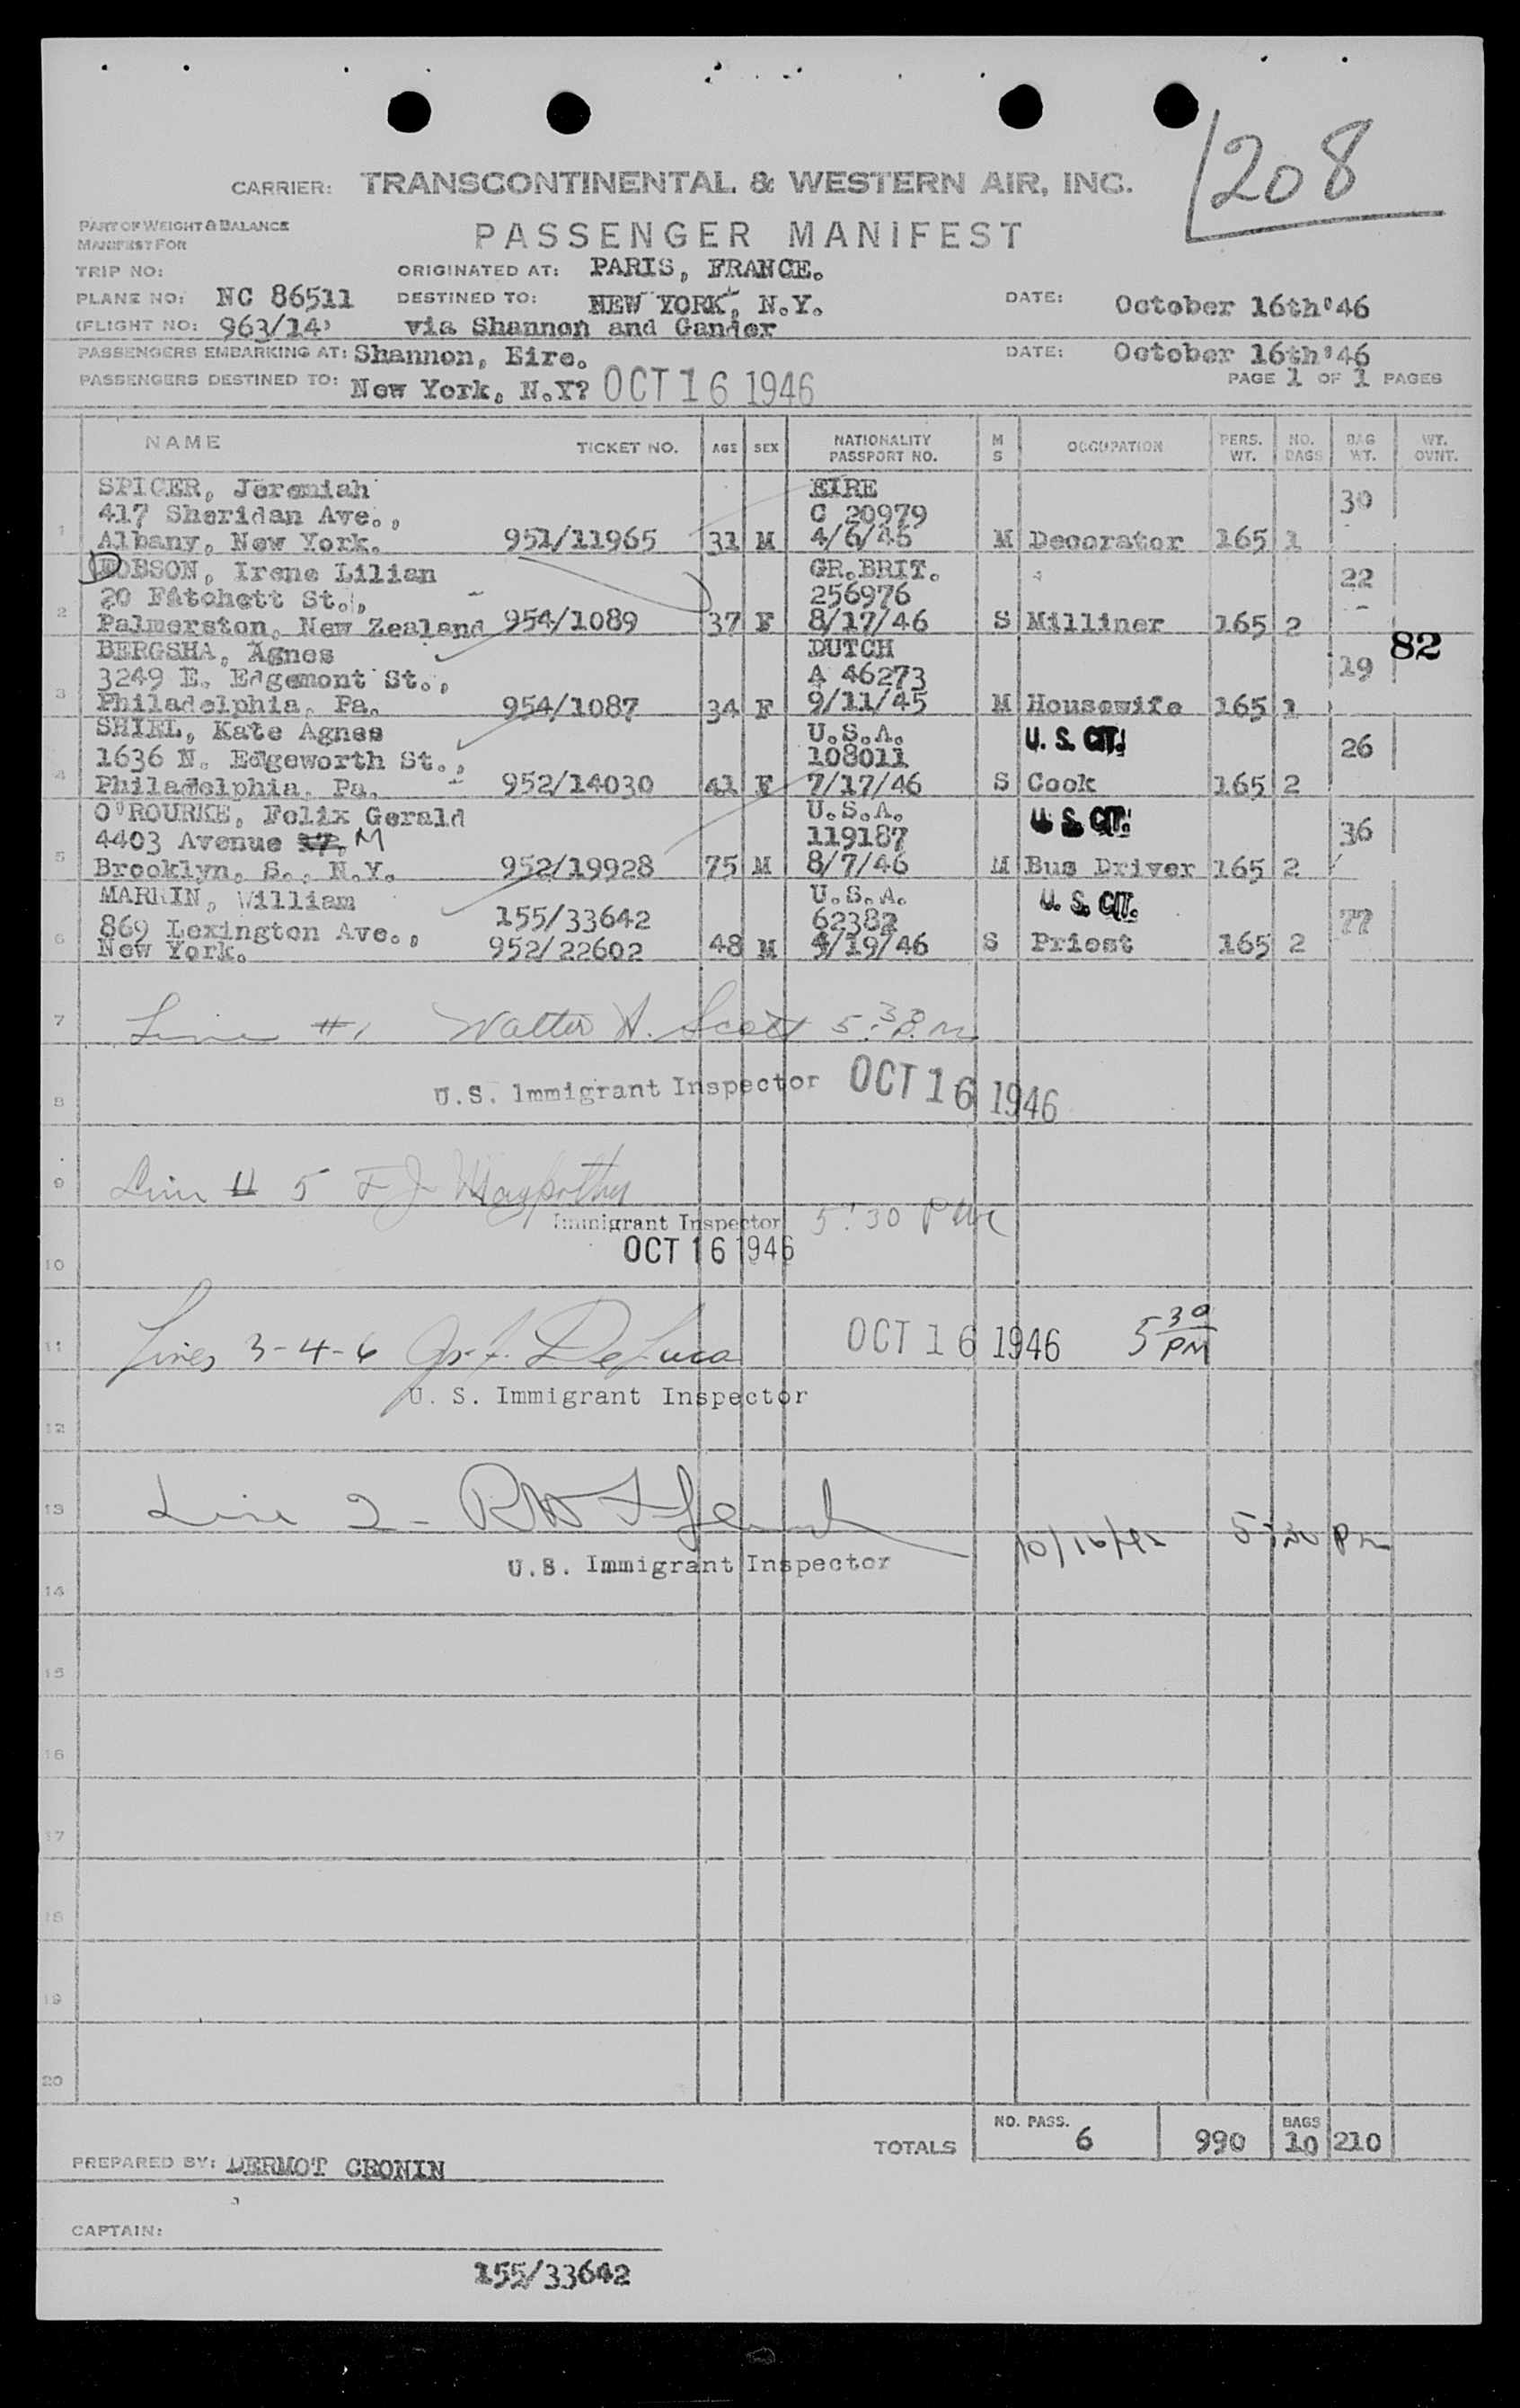 1208
CARRIER: TRANSCONTINENTAL & WESTERN AIR, INC.
PART OF WEIGHT & BALANCE
MANIFEST FOR
PASSENGER MANIFEST
TRIP NO:
ORIGINATED AT: PARIS, FRANCE.
PLANE NO: NC 86511
DESTINED TO: NEW YORK, N.Y.
DATE: October 16th'46
(FLIGHT NO: 963/14)
via Shannon and Gander
PASSENGERS EMBARKING AT: Shannon, Eire.
DATE: October 16th'46
PASSENGERS DESTINED TO: New York, N.Y? OCT 16 1946
PAGE 1 OF 1 PAGES
NAME TICKET NO. AGE SEX NATIONALITY PASSPORT NO. M S OCCUPATION PERS. WT. NO. BAGS BAG WT. WT. OVNT.
SPICER, Jeremiah EIRE
417 Sheridan Ave., C 20979 30
1 Albany, New York. 951/11965 31 M 4/6/46 M Decorator 165 1
DOBSON, Irene Lilian GR.BRIT.
20 Fatchett St., 256976 22
2 Palmerston, New Zealand 954/1089 37 F 8/17/46 S Milliner 165 2
BERGSHA, Agnes DUTCH 82
3249 E. Edgemont St., A 46273 19
3 Philadelphia, Pa. 954/1087 34 F 9/11/45 M Housewife 165 1
SHIEL, Kate Agnes U.S.A. U.S. CIT.
1636 N. Edgeworth St., 108011 26
4 Philadelphia, Pa. 952/14030 41 F 7/17/46 S Cook 165 2
O'ROURKE, Felix Gerald U.S.A. U.S. CIT.
4403 Avenue M 119187 36
5 Brooklyn, S., N.Y. 952/19928 75 M 8/7/46 M Bus Driver 165 2
William U.S.A. U.S. CIT.
869 Lexington Ave., 155/33642 62382 77
6 New York. 952/22602 48 M 4/19/46 S Priest 165 2
7 Line #1 Walter A. Scott 5:30 P.m
8 U.S. Immigrant Inspector OCT 16 1946
9 Line # 5 F J
Immigrant Inspector 5:30 PM
10 OCT 16 1946
11 Lines 3-4-6 Jos. F. DeLuca OCT 16 1946 5 30 PM
U. S. Immigrant Inspector
12
13 Line 2 -
U.S. Immigrant Inspector 10/16/46 5:30 Pm
14
15
16
17
18
19
20
TOTALS NO. PASS. 6 990 BAGS 10 210
PREPARED BY: DERMOT CRONIN
CAPTAIN:
155/33642